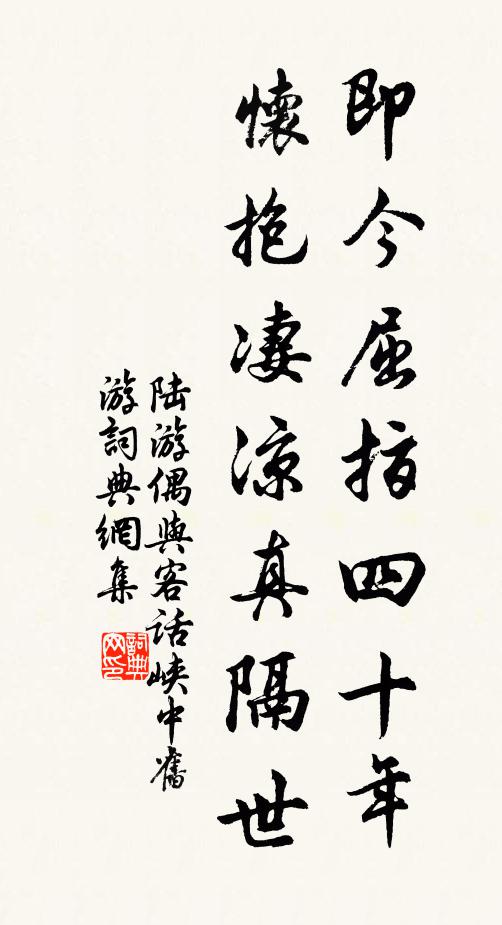 即今屈指四十年
懷抱凄凉真隔世
陆游偶與客话峡中舊
游詞典網集
詞典
网印